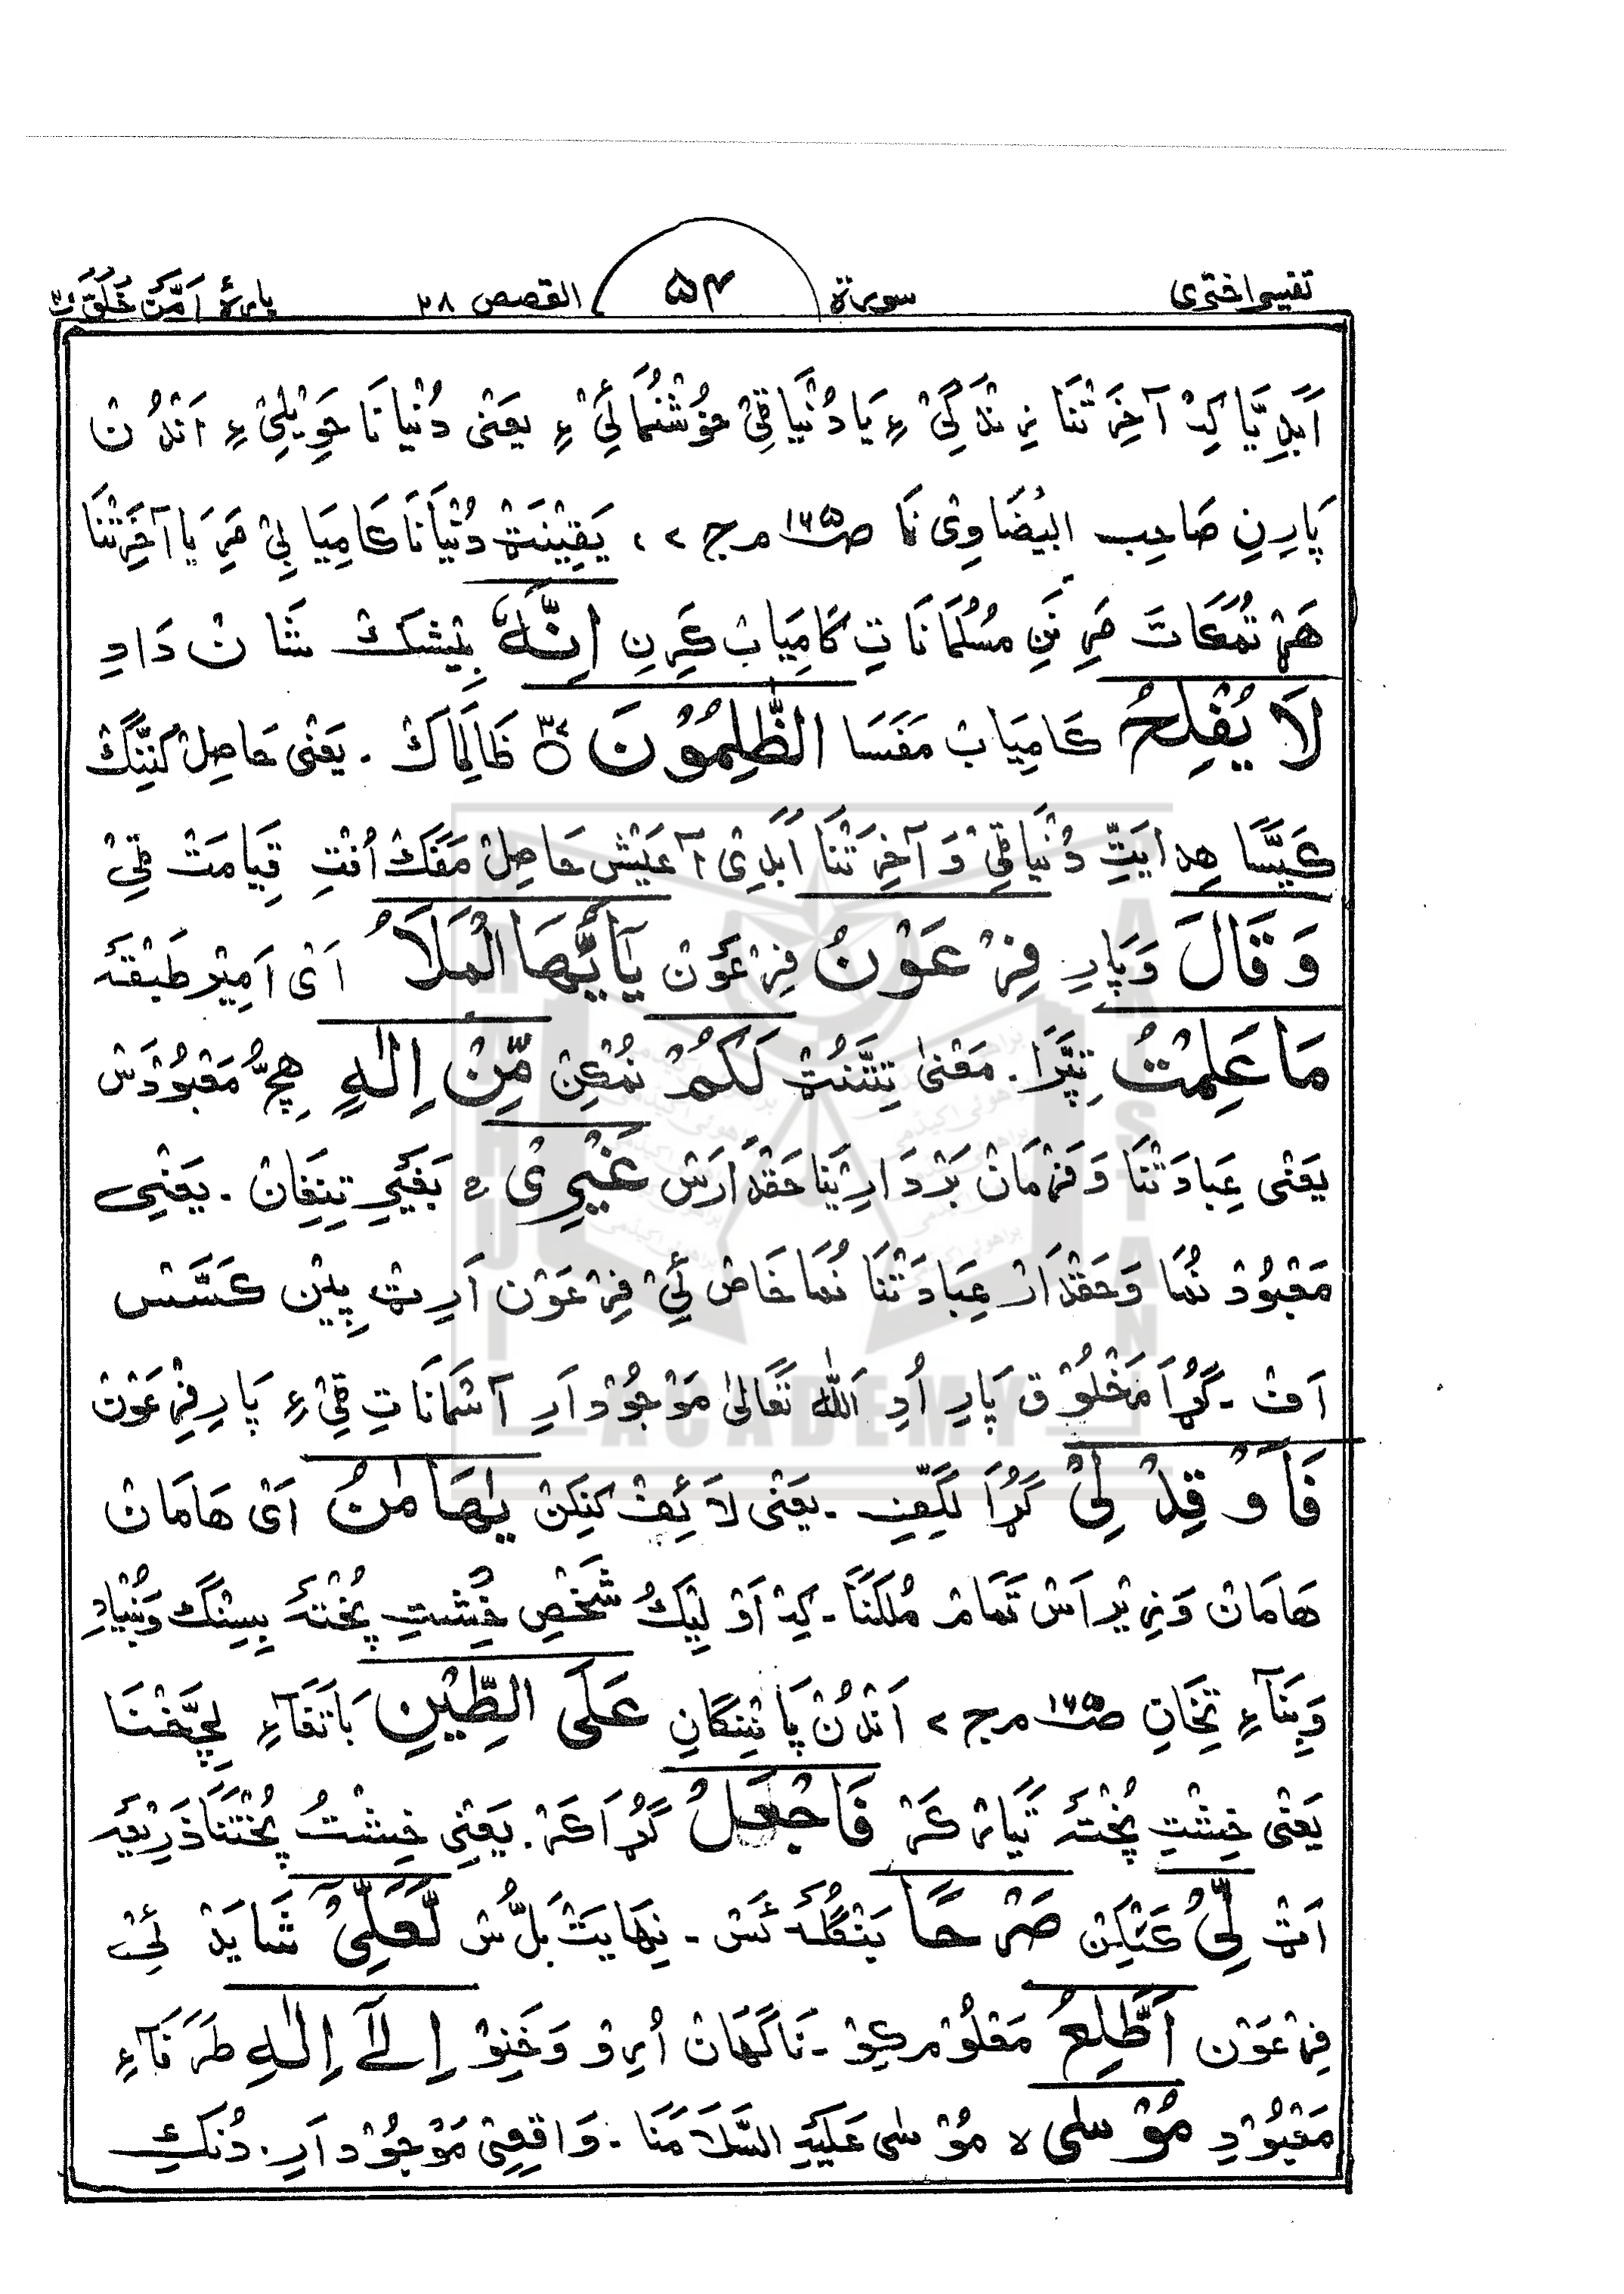 تفسیر اختری سورة ۵۴ القصص ۲۸ پارۀ اَمَّنْ خَلَقَ
اَبدِیَّا کِہ آخِرَتْنَا زِنْدَگیْ ءِ یَا دُنْیَاقِیْ خُوْشْنُمَائِیْ ءِ یَعْنٰی دُنْیَانَا حَوِیْلِیْ ءِ اَنْدُنْ
پَارِنِ صَاحِب البَیْضَاوِیْ نَا صـ۱۶۵ـ م ج ۲، یَقِیْنَتْ دُنْیَانَا کَامِیَابِیْ مَرِ یَا آخِرَتْنَا
هَرْ تُمَکَاتَ مَرِ نَنِ مُسُلمَانَاتِ کَامِیَابْ کَرِنِ اِنَّهُ بِیْشَکْ شَانْ دَادِ
لَا يُفْلِحُ کَامِیَابْ مَفَسَا الظّٰلِمُوْنَ ظَالِمَاکْ ۔ یَعْنٰی حَاصِلْ کَنِنَّگْ
کَپَسَّا هِدَایَتِّ دُنْیَاقِیْ وَ آخِرَتْنَا اَبَدِیْ آ عَیْش حَاصِلْ مَفَکْ اُفْتِ قِیَامَتْ قِیْ
وَ قَالَ وَپَارِ فِرْعَوْنُ فِرْعَوْنْ يٰٓاَيُّهَا الْمَلَاُ اَیْ اَمِیْر طَبْقَہ
مَا عَلِمْتُ تِپَّرَا ۔ مَعْنٰی تِتَّنُٹ لَكُمْ نُمْکِنْ مِّنْ اِلٰهٍ هِچُّ مَعْبُوْدَسْ
یَعْنٰی عِبَادَتْنَا وَ فَرْمَانْ بَرْدَارِیْنَا حَقْدَارَسْ غَيْرِیْ ۚ بَغَیْرِ تِنِقَانْ ۔ یَعْنِی
مَعْبُوْدْ نُمَا وَ حَقْدَارْ عِبَادَتْنَا نُمَا خَاصْ ئِیْ فِرْعَوْن اَرِٹْ پِیْن کَسَّسْ
اَفْ ۔ گُڑَا مَخْلُوْق پَارِ اُدِ اَللّٰه تَعَالٰی مَوْجُوْد اَرِ آسْمَانَاتِ قِیْ ءِ پَارِ فِرْعَوْنْ
فَاَوْقِدْ لِیْ گُڑَا لَگِفِ ۔ یَعْنٰی لَائِفْ کَنِکِنْ يٰهَامٰنُ اَیْ هَامَانْ
هَامَانْ وَزِیْر اَسْ تَمَام مُلکَنَا ۔ کِہ اَوْلِیکُ شَخْصِ خِشْتِ پُخْتَہ بِسِنْگ وَبُنْیَادِ
وَبِنَآءِ تِخَانِ صـ۱۶۵ـ م ج ۲ اَنْدُنْ پَانِنگَانِ عَلَى الطِّيْنِ بَاتَغَآءِ لِچَّخْنَا
یَعْنٰی خِشْتِ پُخْتَہ تَیَّارْ کَرْ فَاجْعَلْ گُڑَا کَرْ ۔ یَعْنِی خِشْتُ پُخْتَنَا ذَرِیْعَہ
اَٹ لِّیْ کَنْکِنْ صَرْحًا بَنْگَلَہ ئَسْ ۔ نِهَایَتْ بَلُّسْ لَّعَلِّیْٓ شَایَدْ ئِیْ
فِرْعَوْن اَطَّلِعُ مَعْلُوْم کِیْوْ ۔ نَاگَهَانْ اُرِوْ وَ خَنِوْ اِلٰٓى اِلٰهِ طَرَفَآءِ
مَعْبُوْدِ مُوْسٰى ۙ مُوْسٰی عَلَیْهِ السَّلَامْنَا ۔ وَاقِعِیْ مَوْجُوْد اَرِ ۔ دُنْکِ